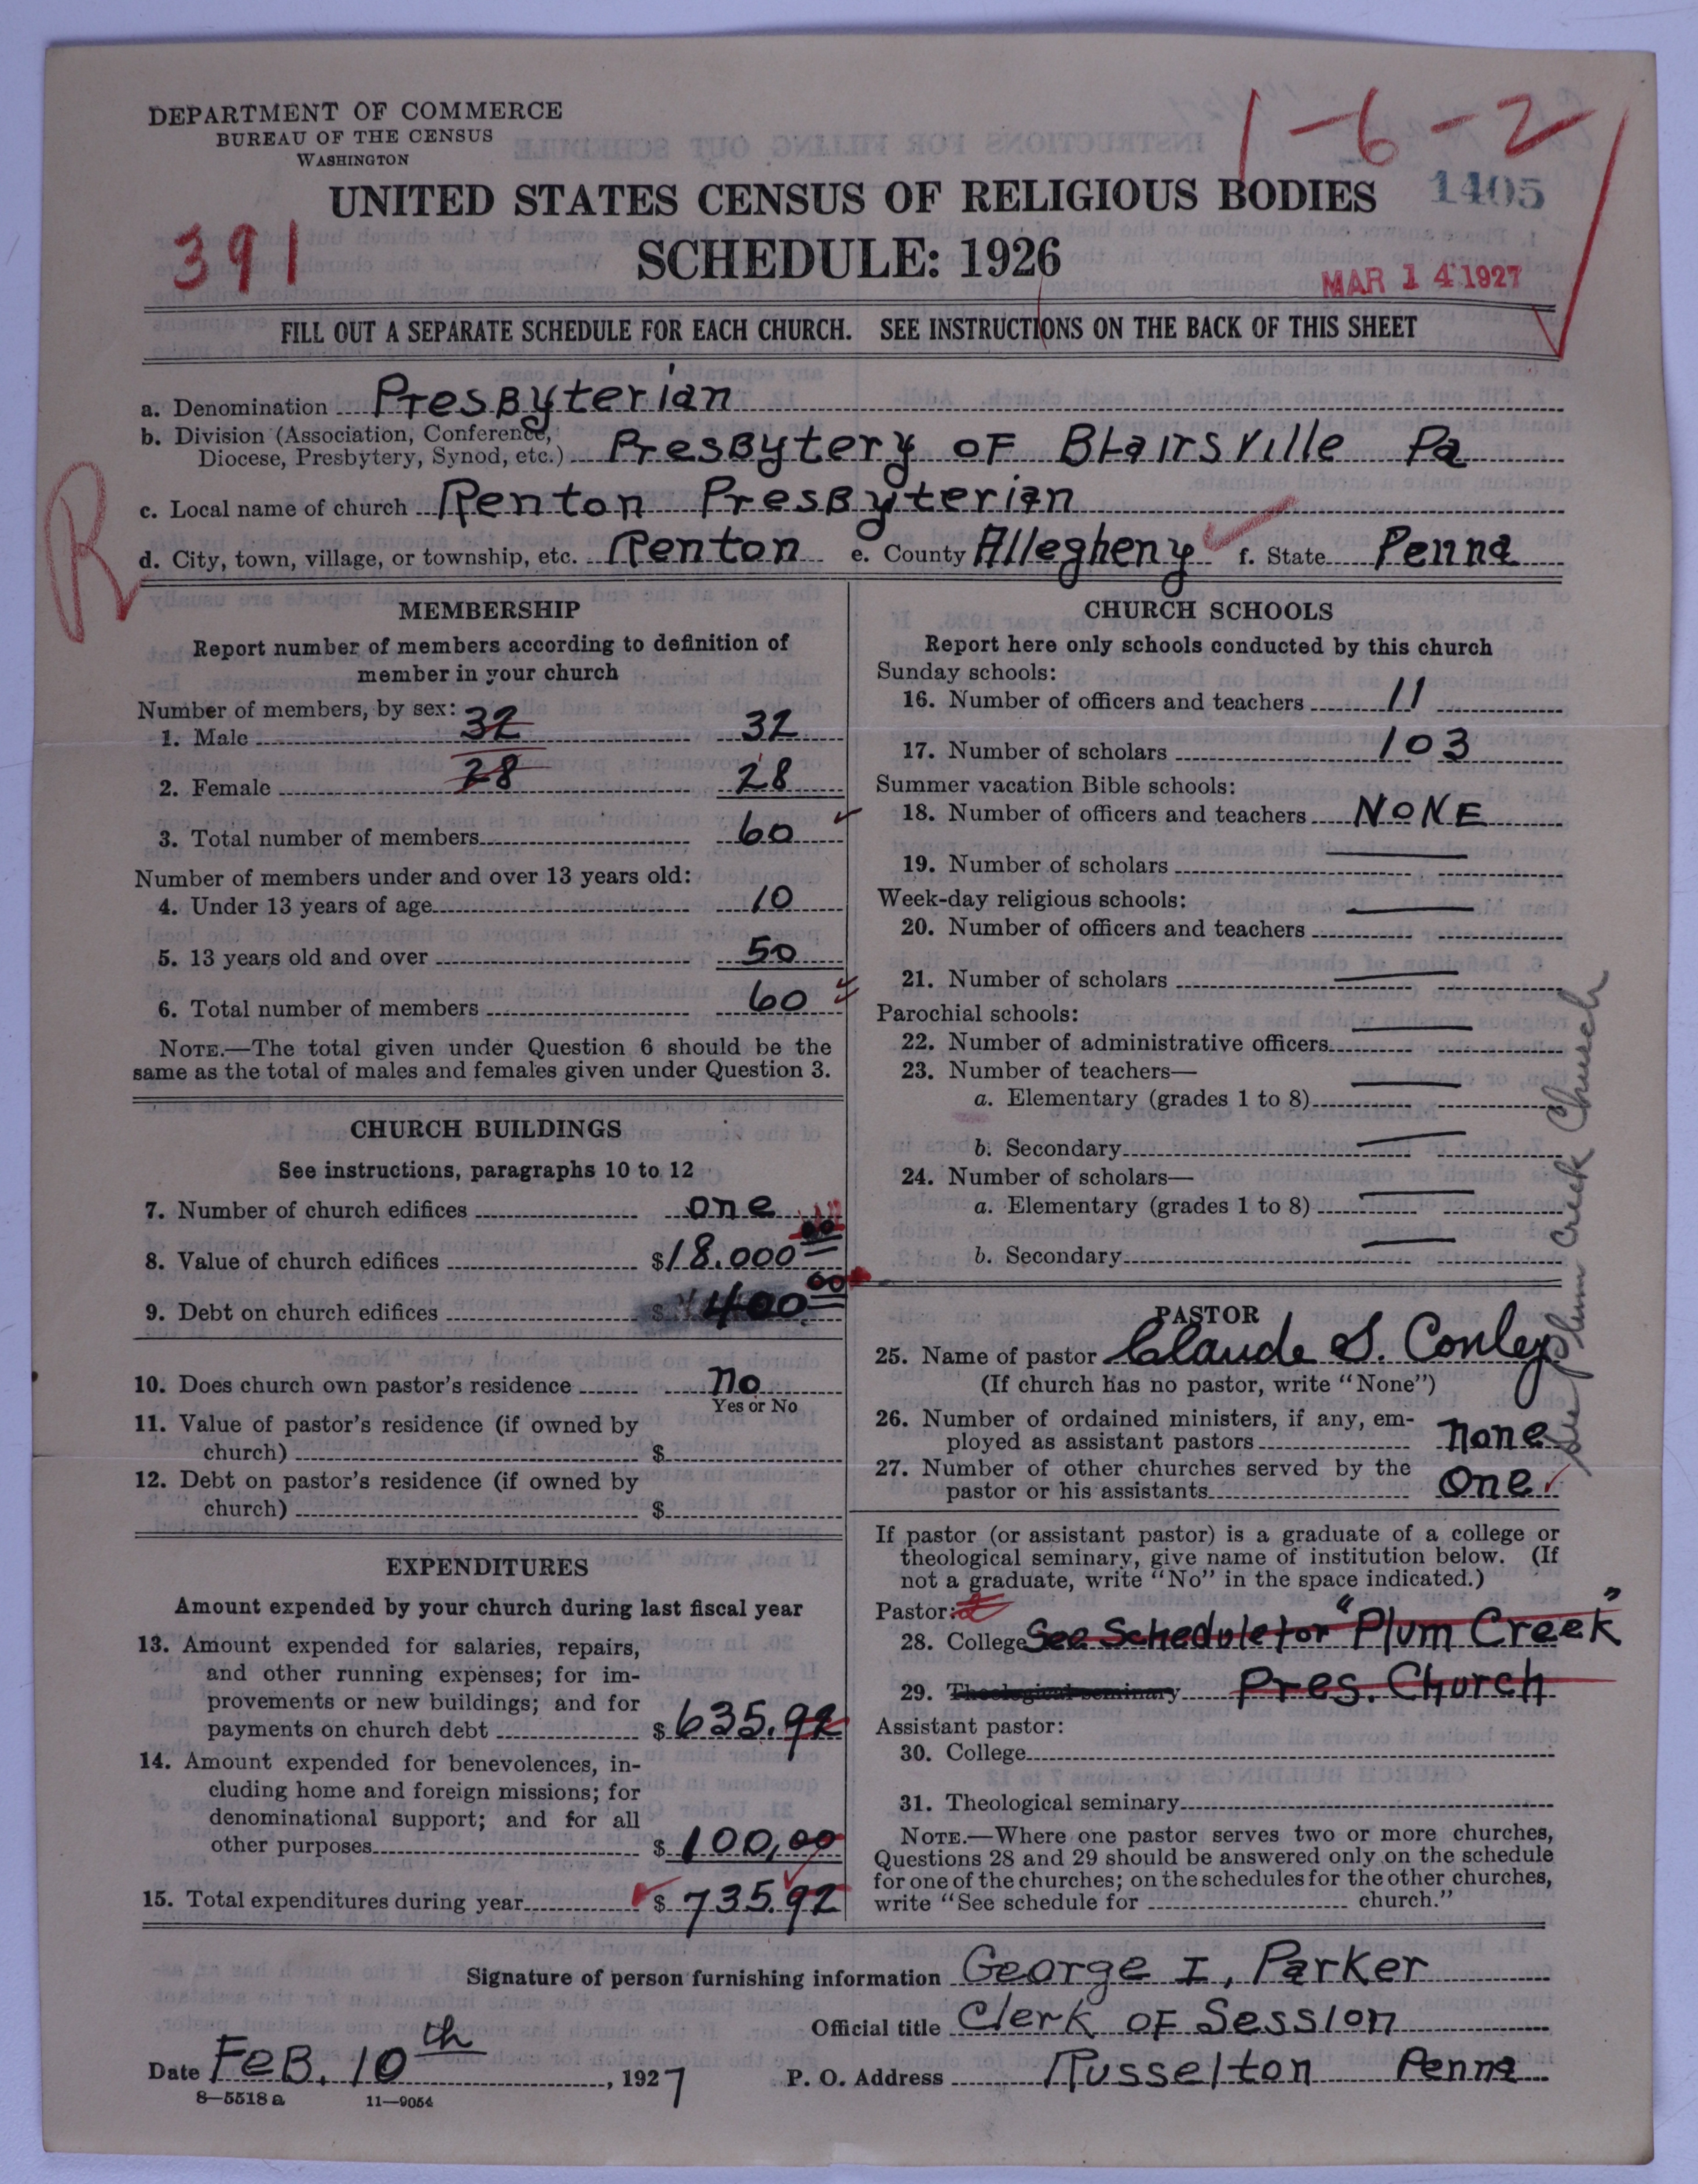 DEPARTMENT OF COMMERCE
BUREAU OF THE CENSUS
WASHINGTON
1-6-2
1405
UNITED STATES CENSUS OF RELIGIOUS BODIES
391
SCHEDULE: 1926
MAR 14 1927
FILL OUT A SEPARATE SCHEDULE FOR EACH CHURCH. SEE INSTRUCTIONS ON THE BACK OF THIS SHEET
a. Denomination Presbyterian
b. Division (Association, Conference,
Diocese, Presbytery, Synod, etc.) Presbytery of Blairsville Pa
c. Local name of church Renton Presbyterian
R
d. City, town, village, or township, etc. Renton e. County Allegheny f. State Penna
MEMBERSHIP
Report number of members according to definition of
member in your church
Number of members, by sex:
1. Male 32 32
2. Female 28 28
3. Total number of members 60
Number of members under and over 13 years old:
4. Under 13 years of age 10
5. 13 years old and over 50
6. Total number of members 60
NOTE.—The total given under Question 6 should be the
same as the total of males and females given under Question 3.
CHURCH BUILDINGS
See instructions, paragraphs 10 to 12
7. Number of church edifices one
8. Value of church edifices $18.000 00
9. Debt on church edifices $ 400 00
10. Does church own pastor's residence no
Yes or No
11. Value of pastor's residence (if owned by
church) $
12. Debt on pastor's residence (if owned by
church) $
EXPENDITURES
Amount expended by your church during last fiscal year
13. Amount expended for salaries, repairs,
and other running expenses; for im-
provements or new buildings; and for
payments on church debt $ 635.92
14. Amount expended for benevolences, in-
cluding home and foreign missions; for
denominational support; and for all
other purposes $ 100,00
15. Total expenditures during year $ 735.92
CHURCH SCHOOLS
Report here only schools conducted by this church
Sunday schools:
16. Number of officers and teachers 11
17. Number of scholars 103
Summer vacation Bible schools:
18. Number of officers and teachers NONE
19. Number of scholars
Week-day religious schools:
20. Number of officers and teachers
21. Number of scholars
Parochial schools:
22. Number of administrative officers
23. Number of teachers—
a. Elementary (grades 1 to 8)
b. Secondary
24. Number of scholars—
a. Elementary (grades 1 to 8)
b. Secondary
See Plum Creek Church
PASTOR
25. Name of pastor Claude S. Conley
(If church has no pastor, write "None")
26. Number of ordained ministers, if any, em-
ployed as assistant pastors none
27. Number of other churches served by the
pastor or his assistants one
If pastor (or assistant pastor) is a graduate of a college or
theological seminary, give name of institution below. (If
not a graduate, write "No" in the space indicated.)
Pastor:
28. College See Schedule for "Plum Creek"
29. Theological seminary Pres. Church
Assistant pastor:
30. College
31. Theological seminary
NOTE.—Where one pastor serves two or more churches,
Questions 28 and 29 should be answered only on the schedule
for one of the churches; on the schedules for the other churches,
write "See schedule for church."
Signature of person furnishing information George I, Parker
Official title Clerk of Session
Date Feb. 10th, 1927 P. O. Address Russelton Penna
8—5518 a 11—9054